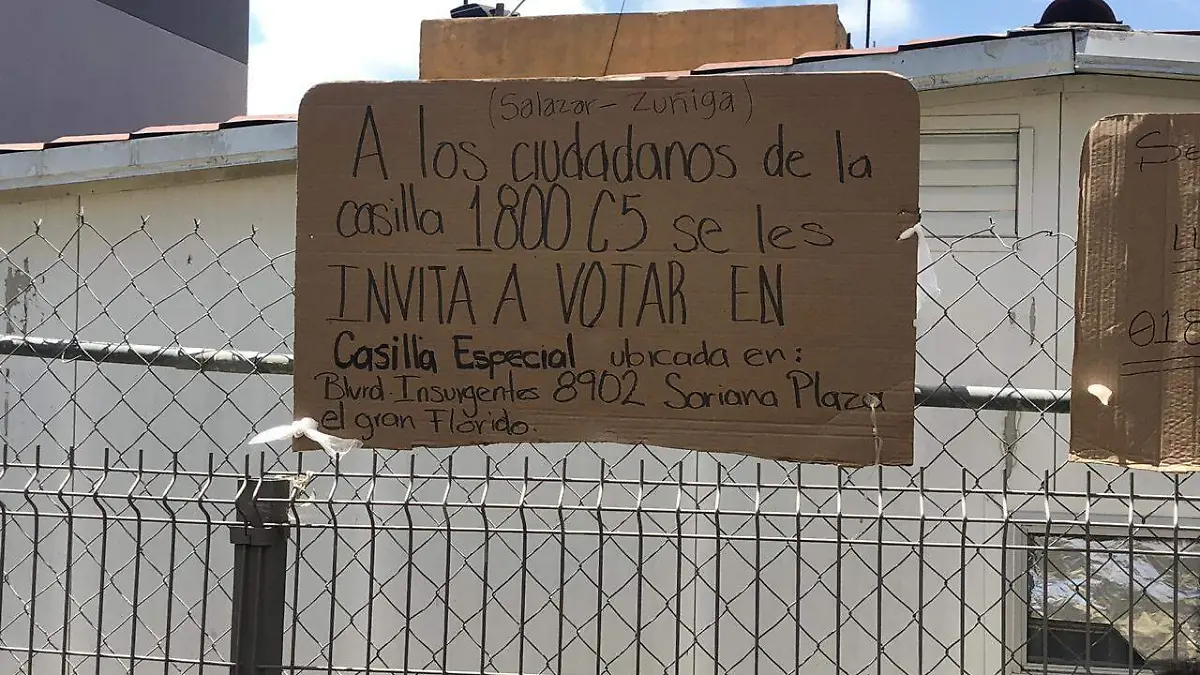 (Salazar-Zuñiga)
A los ciudadanos de la
casilla 1800 C5 se les
INVITA A VOTAR EN
Casilla Especial ubicada en:
Blvrd. Insurgentes 8902 Soriana Plaza
el gran Florido.
018